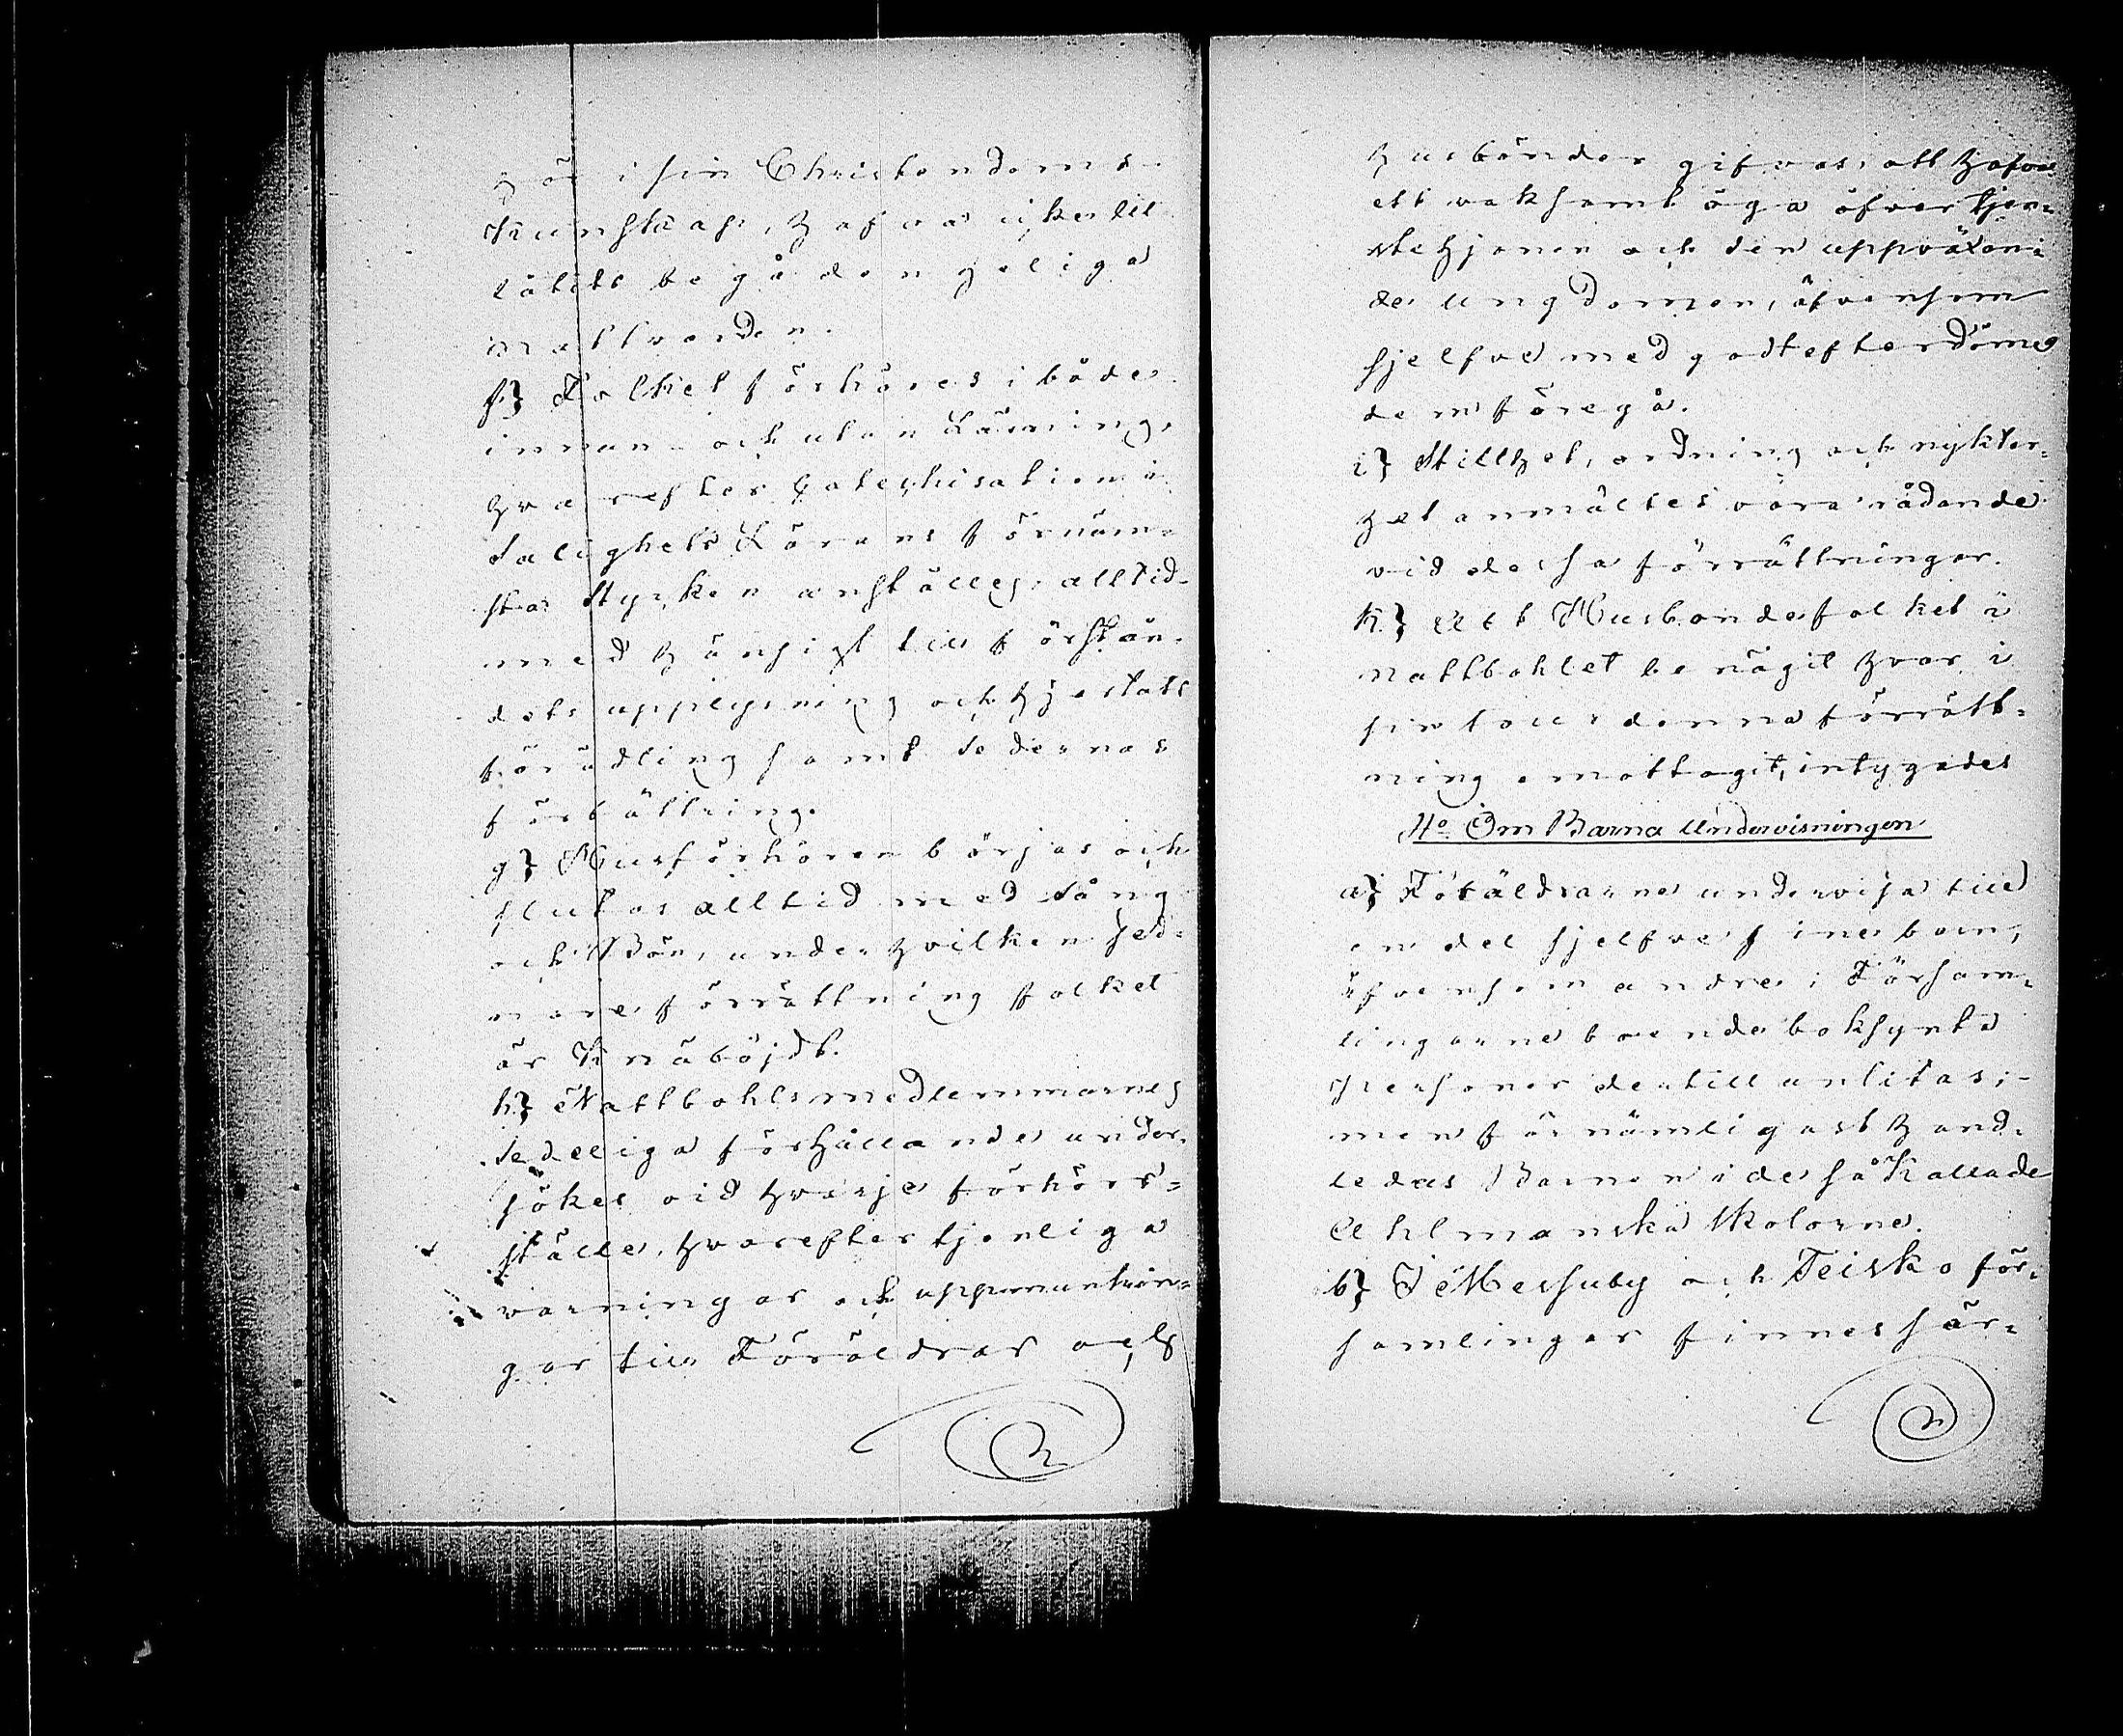 gör i sin Christendoms-
Kunskap, hafva icke till
låtits begå den heliga
nattvarden.
f} Folket förhöres i både
innan- och utan Läsning,
hvarefter Catechisation i
Salighets Lärans förnäm-
sta Stycken anställes, alltid
med hänsigt till förstån-
dets upplysning och hjertats
förädling samt Sedernas
förbättring.
g} Husförhören börjas och
slutas alltid med Sång
och Bön, under hvilken sed-
nare förrättning folket
är Knäböjdt.
h} Mattbohlsmedlemmarnes
Sedeliga förhållande under-
sökes vid hvarje förhörs-
ställe, hvarefter tjenliga
varningar och uppmuntrin-
gar till Föräldrar och
husbönder gifvas, att hafva
ett vaksamt öga öfver tjen-
stehjonen och den uppväxan-
de ungdomen, äfvensom
sjelfve med godt efterdöme
dem föregå.
i} Stillhet, ordning och nykter-
het anmältes vara rådande
vid dessa förrättningar.
k} Att Husbondefolket i
mattbohlet benägit hvar i
sin tour denna förrätt-
ning emottagit, intygades
4o Om Barna Undervisningen
a} Föräldrarne undervisa till
en del sjelfve sine barn,
äfvensom andre i Försam-
lingarne boende boksynta
Personer dertill anlitas;-
men förnämligast hand-
ledas Barnen i de så Kallade
Ahlmanska Skolorne.
b} I Messuby och Teisko för-
samlingar finnes sär-